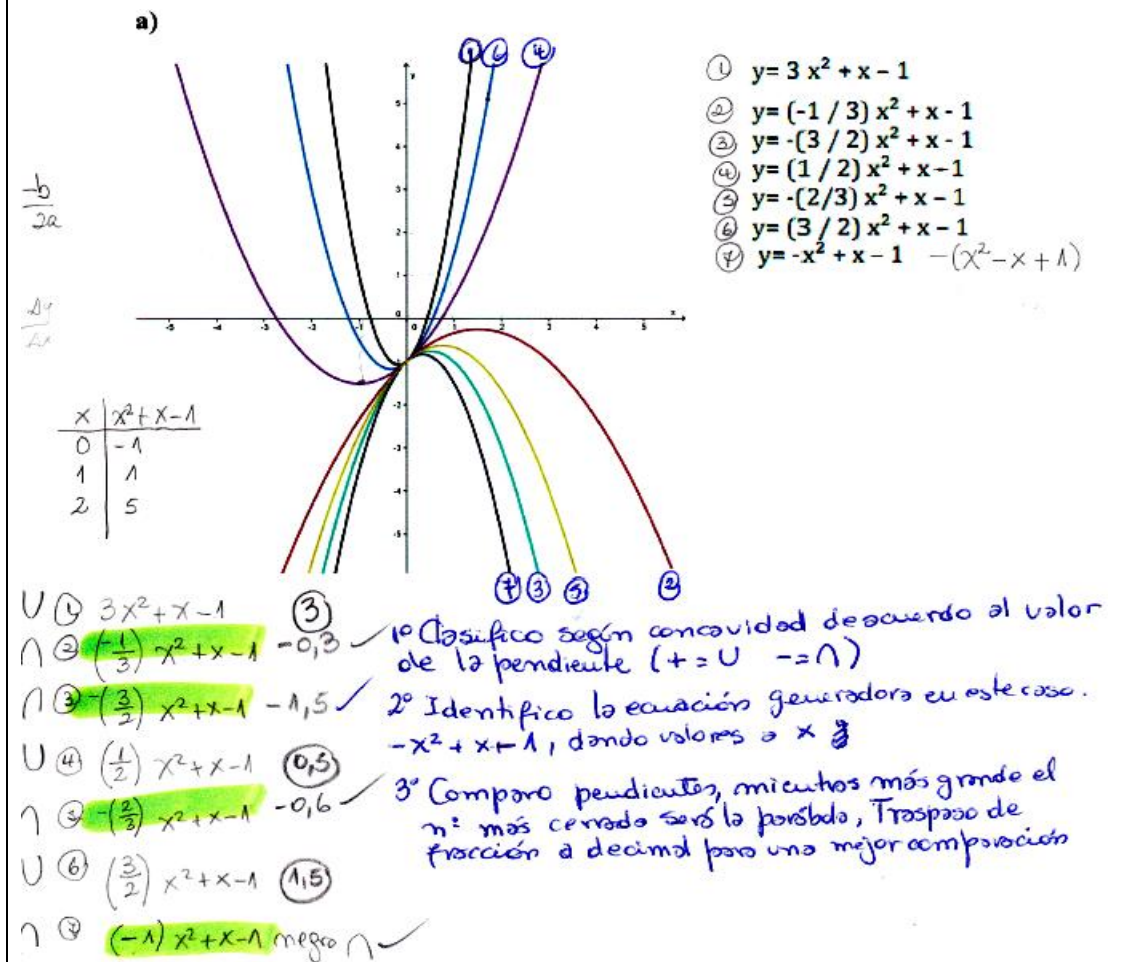 a)
① ⑥ ④
y
5
4
3
2
1
0
-5 -4 -3 -2 -1 0 1 2 3 4 5 x
-2
-3
-4
-5
⑦ ③ ⑤ ②
① y= 3 x² + x – 1
② y= (-1 / 3) x² + x - 1
③ y= -(3 / 2) x² + x - 1
④ y= (1 / 2) x² + x – 1
⑤ y= -(2/3) x² + x – 1
⑥ y= (3 / 2) x² + x – 1
⑦ y= -x² + x – 1 -(x²-x+1)
-b
2a
Δy
Δx
x | x²+x-1
0 | -1
1 | 1
2 | 5
U ① 3x²+x-1 ③
∩ ② (-1/3) x²+x-1 -0,3 ✓
∩ ③ -(3/2) x²+x-1 -1,5 ✓
U ④ (1/2) x²+x-1 0,5
∩ ⑤ -(2/3) x²+x-1 -0,6 ✓
U ⑥ (3/2) x²+x-1 1,5
∩ ⑦ (-1) x²+x-1 negro ∩ ✓
1º Clasifico según concavidad deacuerdo al valor
de la pendiente (+=U -=∩)
2º Identifico la ecuación generadora en este caso.
-x²+x-1, dando valores a x
3º Comparo pendientes, mientras más grande el
nº más cerrado será la parábola, Traspaso de
fracción a decimal para una mejor comparación